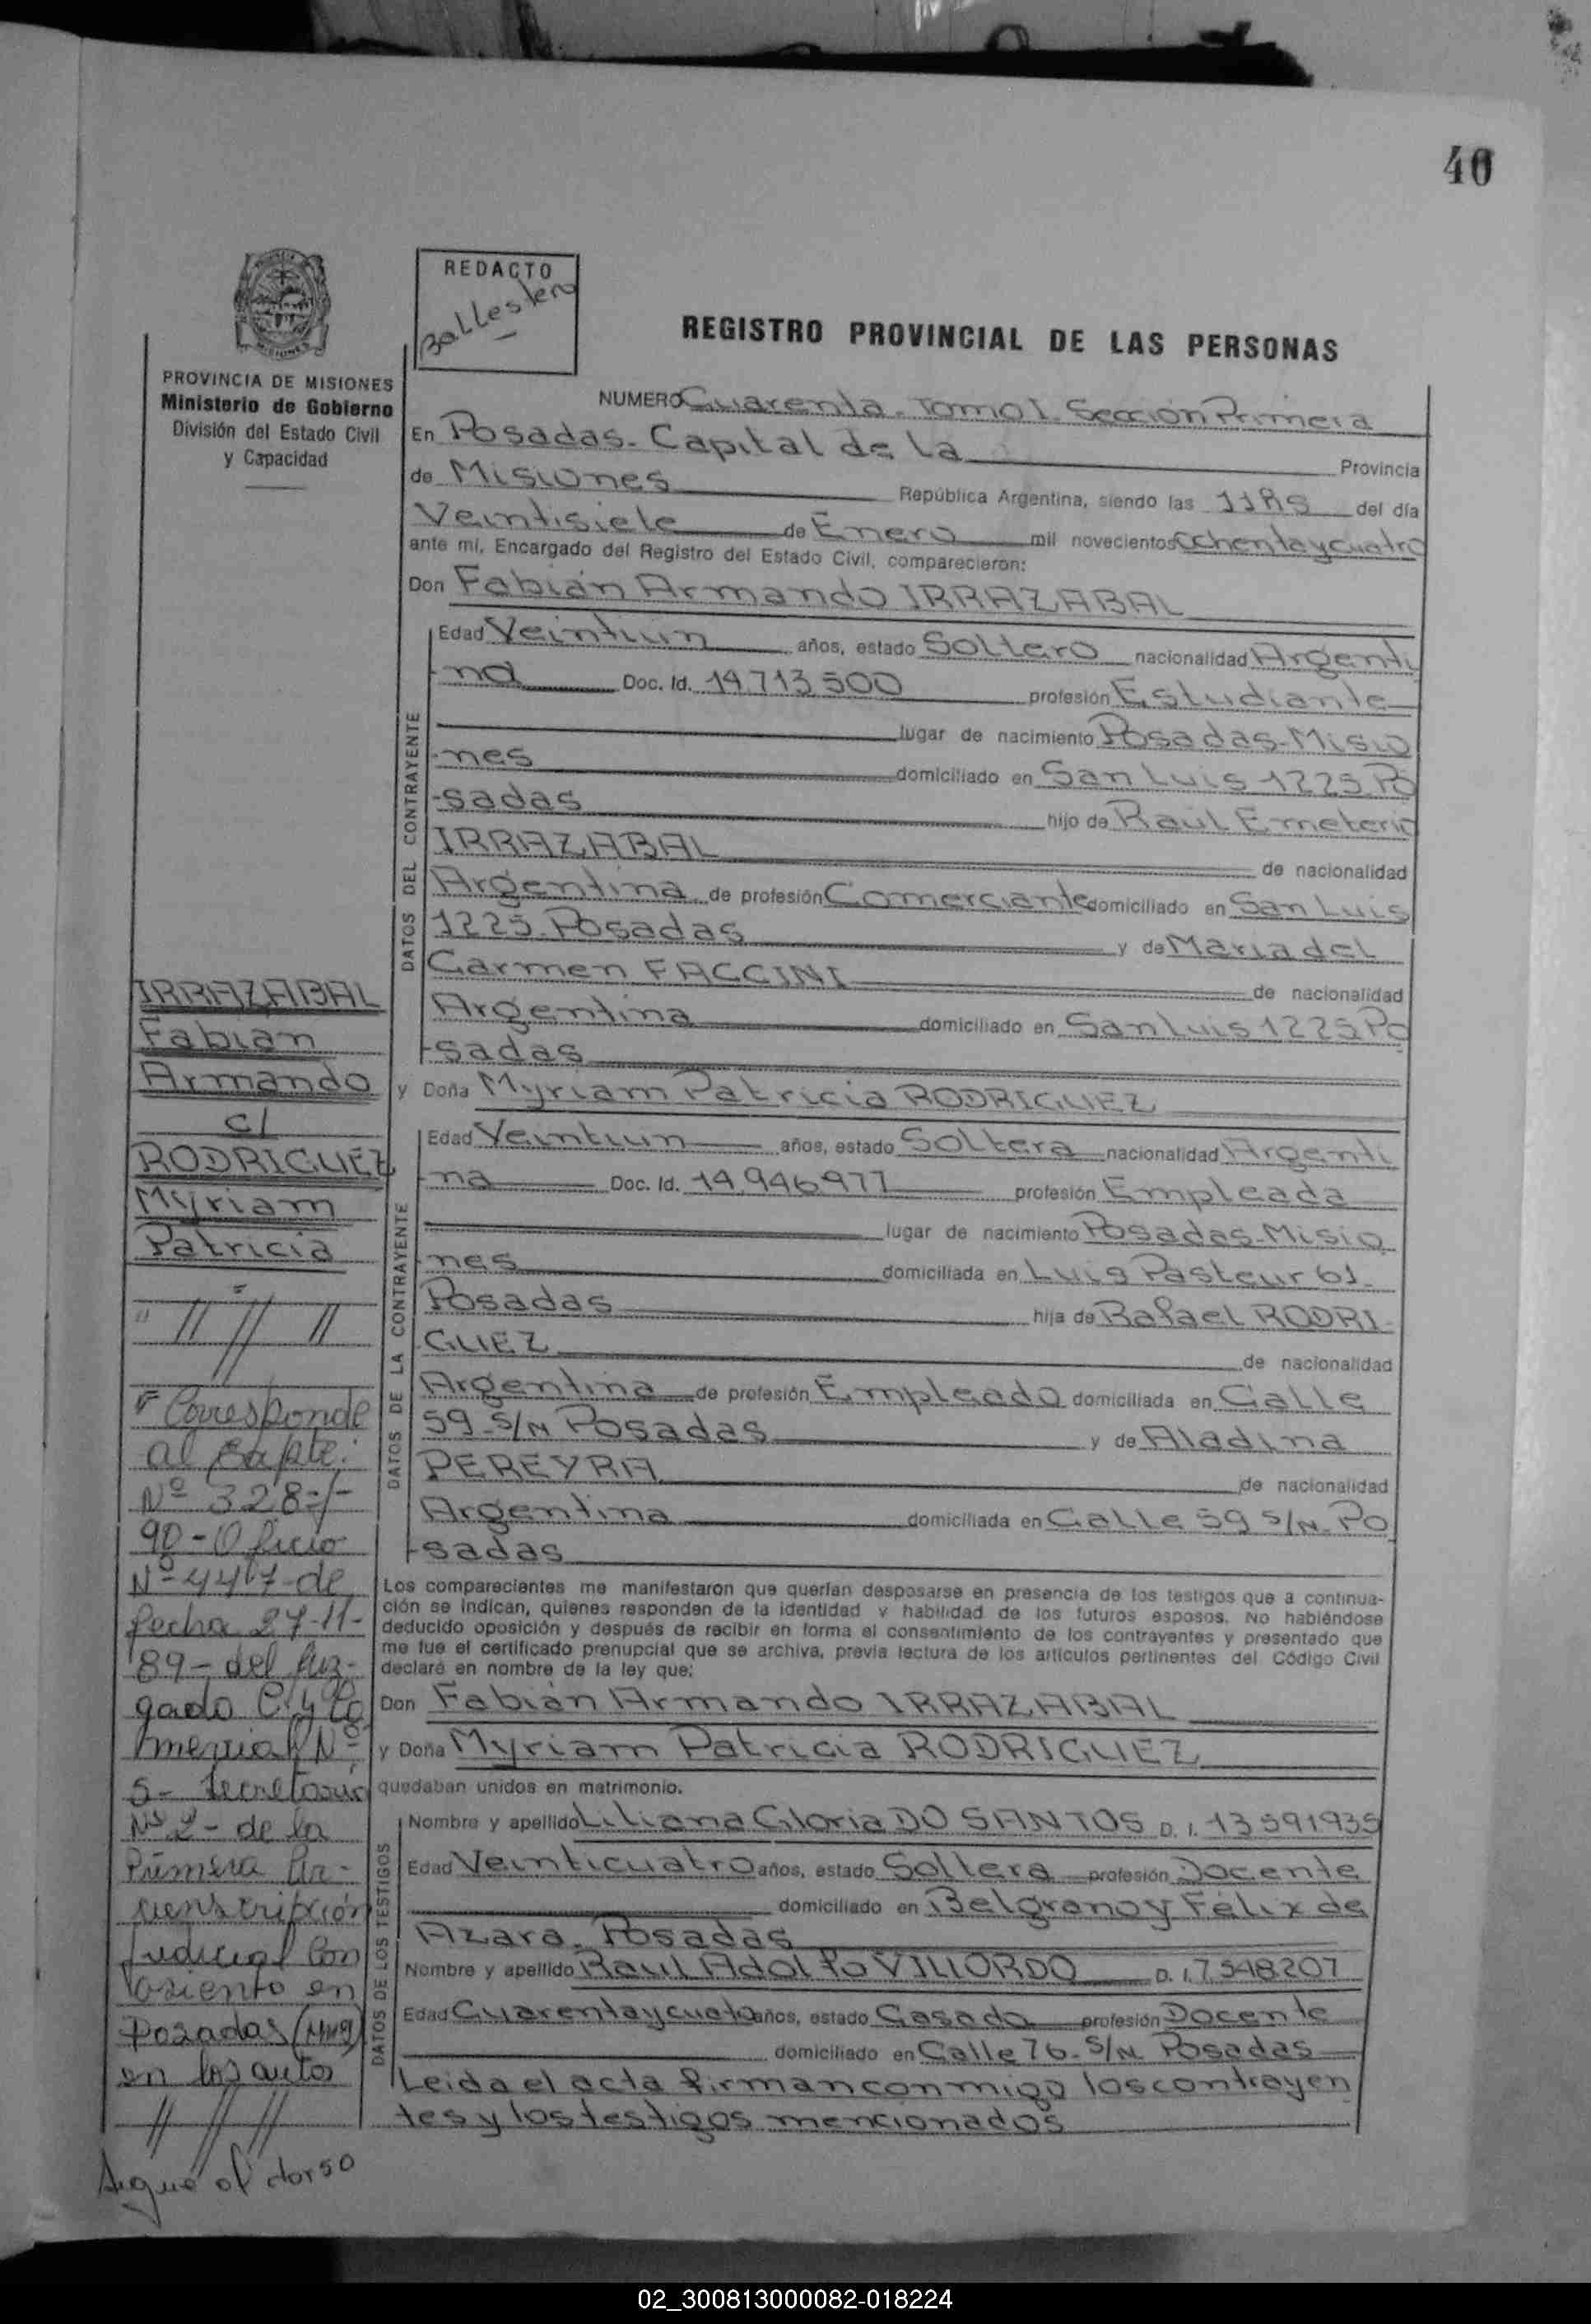 40
REDACTO
Ballestero
REGISTRO PROVINCIAL DE LAS PERSONAS
PROVINCIA DE MISIONES
Ministerio de Gobierno
División del Estado Civil
y Capacidad
NUMERO Cuarenta. Tomo I. Sección Primera
En Posadas. Capital de La Provincia
de Misiones República Argentina, siendo las 11hs del día
Veintisiete de Enero mil novecientos Ochenta y cuatro
ante mí, Encargado del Registro del Estado Civil, comparecieron:
Don Fabián Armando IRRAZABAL
DATOS DEL CONTRAYENTE
Edad Veintiun años, estado Soltero nacionalidad Argenti
-na Doc. Id. 14.713.500 profesión Estudiante
lugar de nacimiento Posadas-Misio
-nes domiciliado en San Luis 1225 Po
-sadas hijo de Raúl Emeterio
IRRAZABAL de nacionalidad
Argentina de profesión Comerciante domiciliado en San Luis
1225. Posadas y de Maria del
Carmen FACCINI de nacionalidad
Argentina domiciliado en San Luis 1225 Po
-sadas
y Doña Myriam Patricia RODRIGUEZ
DATOS DE LA CONTRAYENTE
Edad Veintiun años, estado Soltera nacionalidad Argenti
-na Doc. Id. 14.946977 profesión Empleada
lugar de nacimiento Posadas-Misio
-nes domiciliada en Luis Pasteur 61-
Posadas hija de Rafael RODRI
-GUEZ de nacionalidad
Argentina de profesión Empleado domiciliada en Calle
59 S/N Posadas y de Aladina
PEREYRA de nacionalidad
Argentina domiciliada en Calle 59 S/N. Po
-sadas
Los comparecientes me manifestaron que querían desposarse en presencia de los testigos que a continua-
ción se indican, quienes responden de la identidad y habilidad de los futuros esposos. No habiéndose
deducido oposición y después de recibir en forma el consentimiento de los contrayentes y presentado que
me fue el certificado prenupcial que se archiva, previa lectura de los artículos pertinentes del Código Civil
declaré en nombre de la ley que:
Don Fabián Armando IRRAZABAL
y Doña Myriam Patricia RODRIGUEZ
quedaban unidos en matrimonio.
DATOS DE LOS TESTIGOS
Nombre y apellido Liliana Gloria DO SANTOS D. I. 13591935
Edad Veinticuatro años, estado Soltera profesión Docente
domiciliado en Belgrano y Félix de
Azara. Posadas
Nombre y apellido Raul Adolfo VILLORDO D. I. 7.548207
Edad Cuarentaycuato años, estado Casado profesión Docente
domiciliado en Calle 76. S/N Posadas
Leida el acta firman conmigo los contrayen
tes y los testigos mencionados
IRRAZABAL
Fabián
Armando
c/
RODRIGUEZ
Myriam
Patricia
Corresponde
al expte:
Nº 328-/-
90-Oficio
Nº 4467-de
fecha 27-11-
89-del Juz-
gado C. y Co
mercial Nº
5- Secretaría
Nº 2- de la
Primera Cir-
cunscripción
Judicial Con
asiento en
Posadas (Mnes)
en los autos
Sigue al dorso
02_300813000082-018224